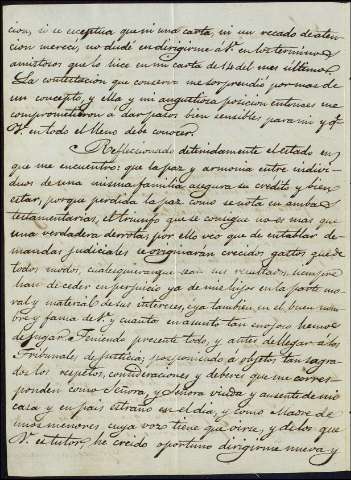 cion, si se exceptua que ni una carta, ni un recado de aten-
cion mereci, no dudé en dirigirme á V. en los terminos
amistosos que lo hice en mi carta de 14 del mes ultimo.
La contestacion que conservo me sorprendió por mas de
un concepto, y ella y mi angustiosa posicion entonces me
comprometieron á dar pasos bien sensibles para mi y qe.
V. en todo el lleno debe conocer.
Refleccionado detenidamente el estado en
que me encuentro: que la paz y armonia entre indivi-
duos de una misma familia, asegura su credito y bien
estar, porque perdida la paz como se nota en ambas
testamentarias, el triunfo que se consigue no es mas que
una verdadera derrota; por ello veo que de entablar de-
mandas judiciales se originarán crecidos gastos que de
todos modos, cualesquiera que sean sus resultados, siempre
han de ceder en perjuicio ya de mis hijos en la parte mo-
ral y material de sus intereses, ya tambien en el buen nom-
bre y fama de V. y cuanto en asunto tan enojoso hemos
de jugar. Teniendo presente todo, y antes de llegar á los
Tribunales de justicia; posponiendo á objetos tan sagra-
dos los respetos, consideraciones y deberes que me corres-
ponden como Señora, y Señora viuda y ausente de mi
casa y en pais estraño en el dia, y como Madre de
unos menores cuya voz tiene que oirse, y de los que
V. es tutor, he creido oportuno dirigirme nueva y